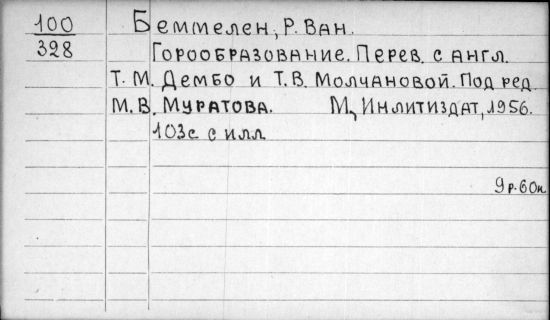 100
328
Беммелен, Р. Ван.
Горообразование. Перев. с англ.
Т. М. Дембо и Т. В. Молчановой. Под ред.
М. В. Муратова. М., Инлитиздат, 1956.
103с с илл.
9 р. 60 к.